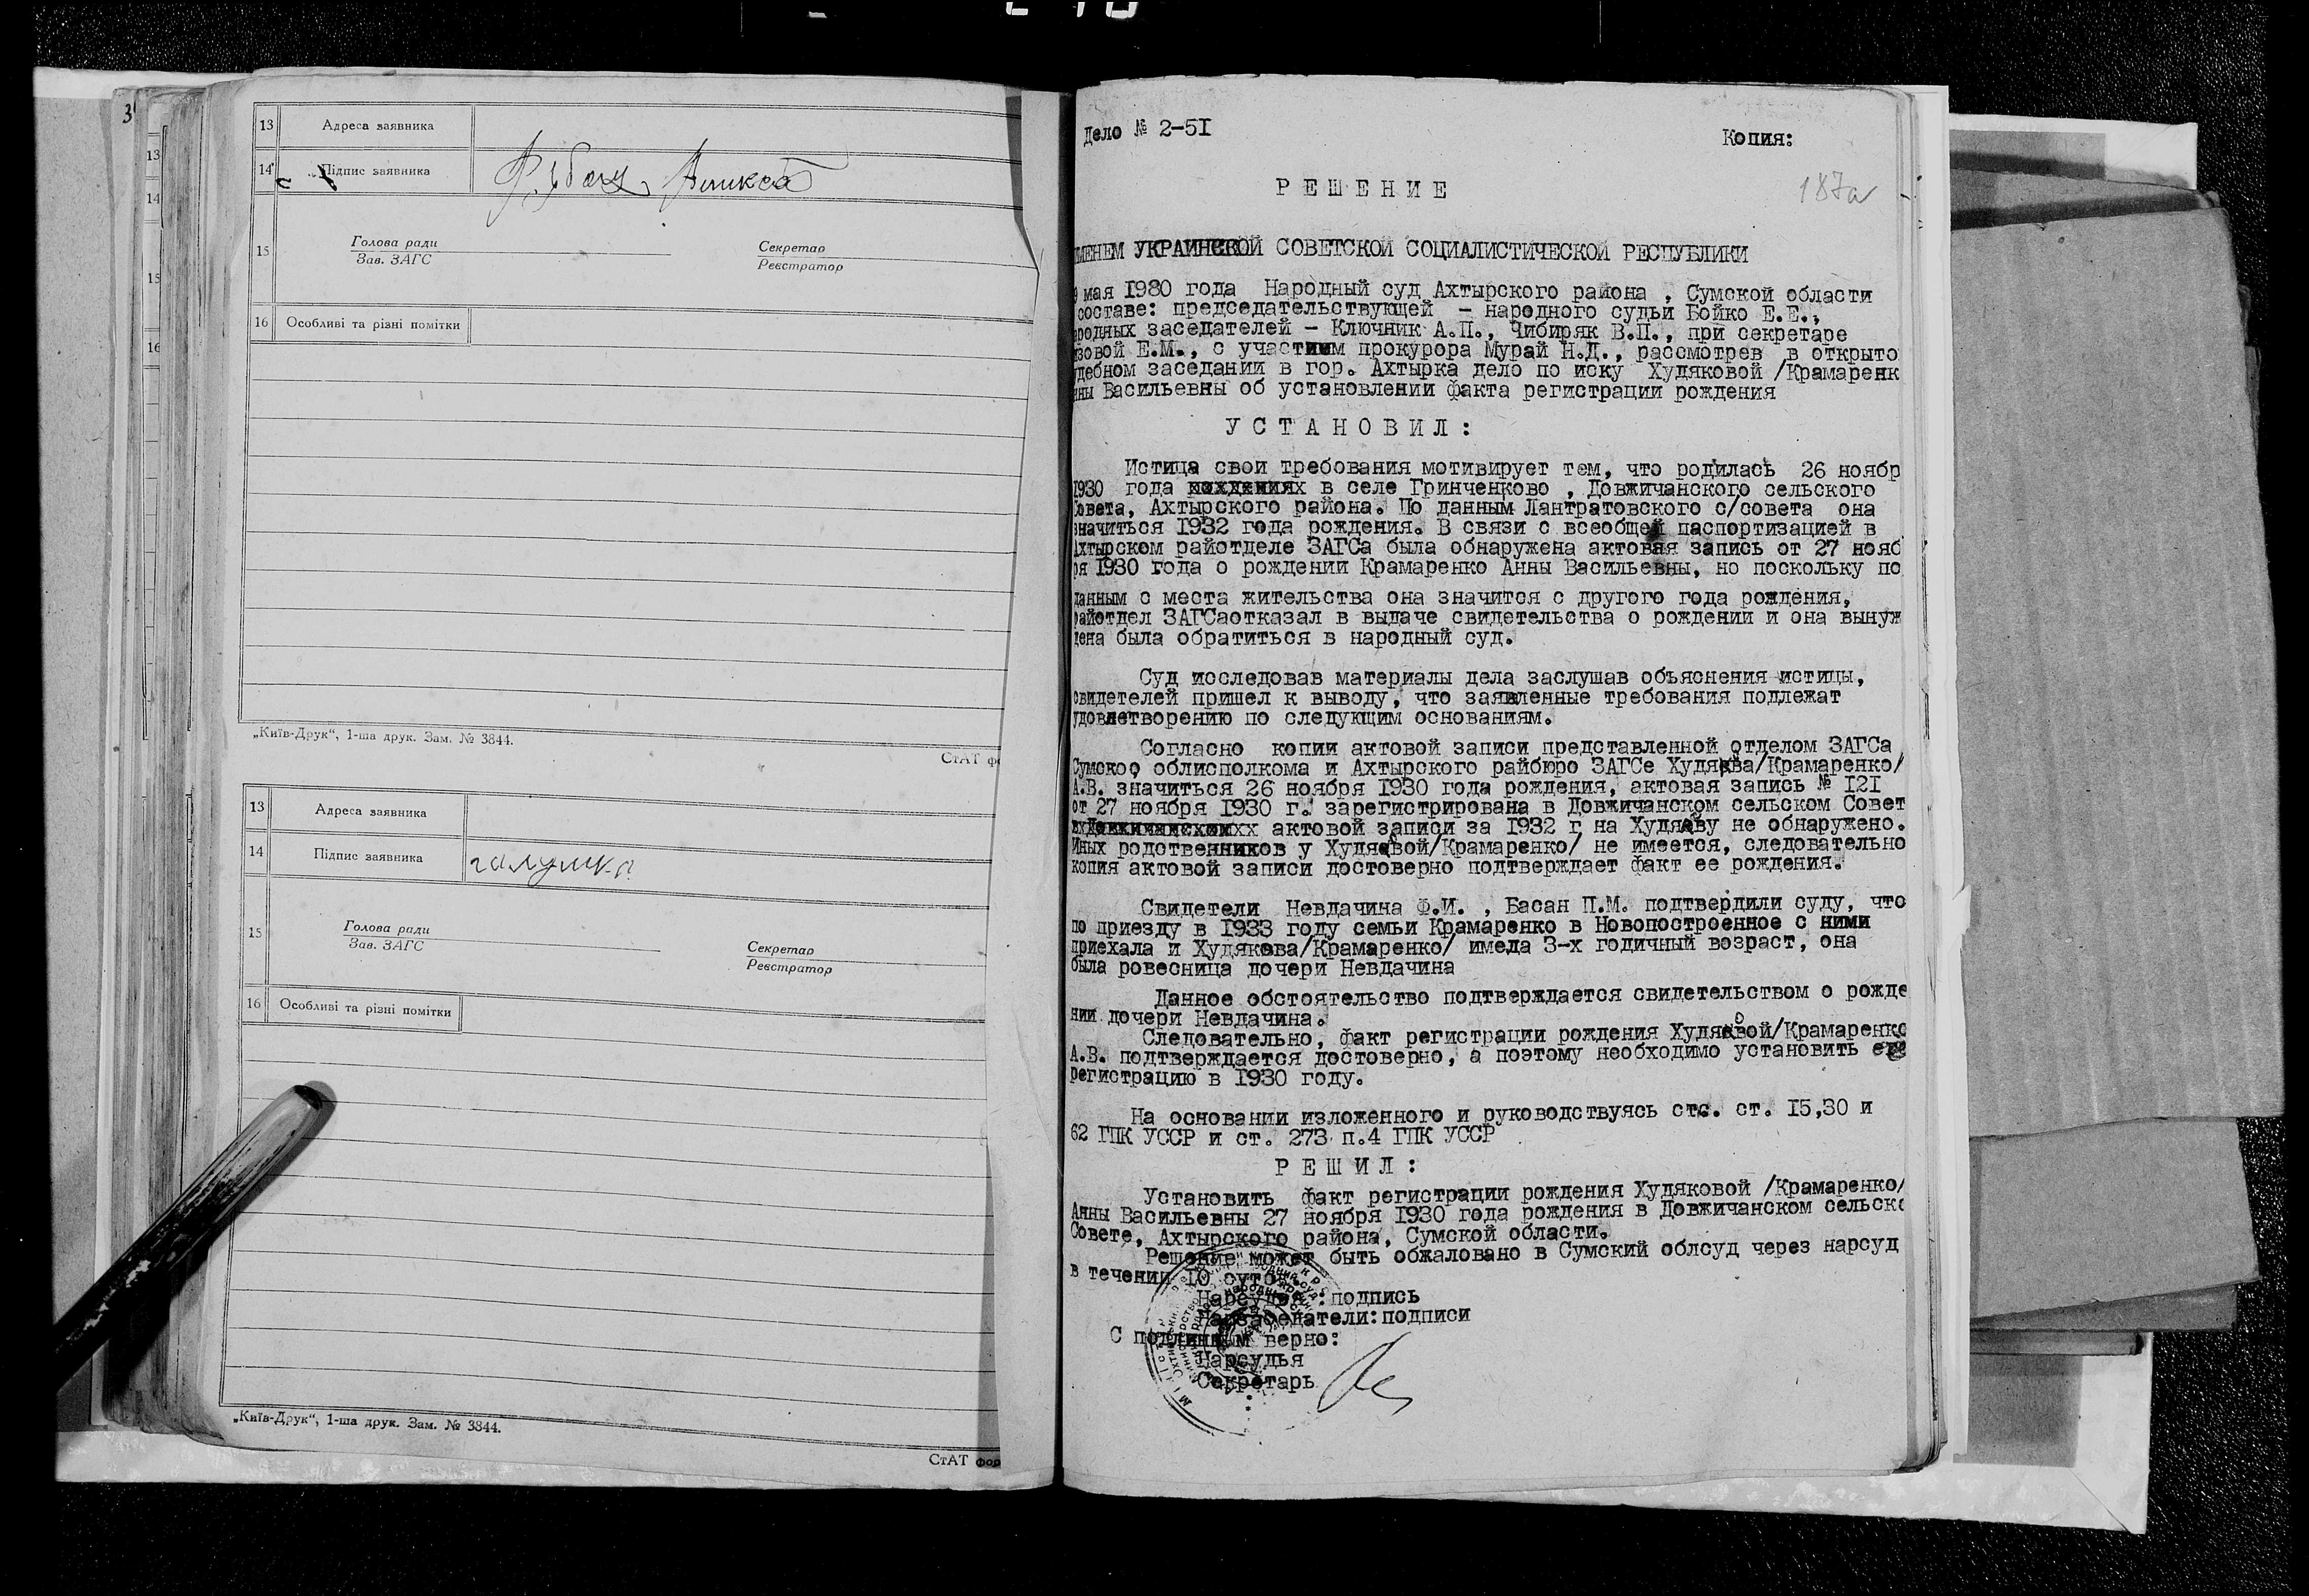 13 Адреса заявника
14 Підпис заявника
15 Голова ради
Зав. ЗАГС
Секретар
Реєстратор
16 Особливі та різні помітки
„Київ-Друк“, 1-ша друк. Зам. № 3844.
СтАТ фо
13 Адреса заявника
14 Підпис заявника галушка
15 Голова ради
Зав. ЗАГС
Секретар
Реєстратор
16 Особливі та різні помітки
„Київ-Друк“, 1-ша друк. Зам. № 3844.
СтАТ фор
Дело № 2-51
Копия:
187а
РЕШЕНИЕ
МЕНЕМ УКРАИНСКОЙ СОВЕТСКОЙ СОЦИАЛИСТИЧЕСКОЙ РЕСПУБЛИКИ
мая 1980 года Народный суд Ахтырского района , Сумской области
составе: председательствующей - народного судьи Бойко Е.Е.,
родных заседателей - Ключник А.П., Чибиряк В.П., при секретаре
зовой Е.М., с участием прокурора Мурай Н.Д., рассмотрев в открыто
удебном заседании в гор. Ахтырка дело по иску Худяковой /Крамаренк
нны Васильевны об установлении факта регистрации рождения
УСТАНОВИЛ:
Истица свои требования мотивирует тем, что родилась 26 ноябр
1930 года в селе Гринченково , Довжичанского сельского
Совета, Ахтырского района. По данным Лантратовского с/совета она
значиться 1932 года рождения. В связи с всеобщей паспортизацией в
Ахтырском райотделе ЗАГСа была обнаружена актовая запись от 27 нояб
ря 1930 года о рождении Крамаренко Анны Васильевны, но поскольку по
данным с места жительства она значится с другого года рождения,
райотдел ЗАГСаотказал в выдаче свидетельства о рождении и она вынуж
дена была обратиться в народный суд.
Суд исследовав материалы дела заслушав объяснения истицы,
свидетелей пришел к выводу, что заявленные требования подлежат
удовлетворению по следующим основаниям.
Согласно копии актовой записи представленной отделом ЗАГСа
Сумского облисполкома и Ахтырского райбюро ЗАГСе Худякова/Крамаренко/
А.В. значиться 26 ноября 1930 года рождения, актовая запись № 121
от 27 ноября 1930 г. зарегистрирована в Довжичанском сельском Совет
актовой записи за 1932 г на Худякову не обнаружено.
Иных родственников у Худяковой/Крамаренко/ не имеется, следовательно
копия актовой записи достоверно подтверждает факт ее рождения.
Свидетели Невдачина Ф.И. , Басан П.М. подтвердили суду, что
по приезду в 1933 году семьи Крамаренко в Новопостроенное с ними
приехала и Худякова/Крамаренко/ имела 3-х годичный возраст, она
была ровесница дочери Невдачина
Данное обстоятельство подтверждается свидетельством о рожде
нии дочери Невдачина.
Следовательно, факт регистрации рождения Худяковой/Крамаренко
А.В. подтверждается достоверно, а поэтому необходимо установить ее
регистрацию в 1930 году.
На основании изложенного и руководствуясь стс. ст. 15,30 и
62 ГПК УССР и ст. 273 п.4 ГПК УССР
РЕШИЛ:
Установить факт регистрации рождения Худяковой /Крамаренко/
Анны Васильевны 27 ноября 1930 года рождения в Довжичанском сельско
Совете, Ахтырского района, Сумской области.
Решение может быть обжаловано в Сумский облсуд через нарсуд
в течении 10 суток.
Нарсудья :подпись
Нарзаседатели:подписи
С подлинным верно:
Нарсудья
Секретарь